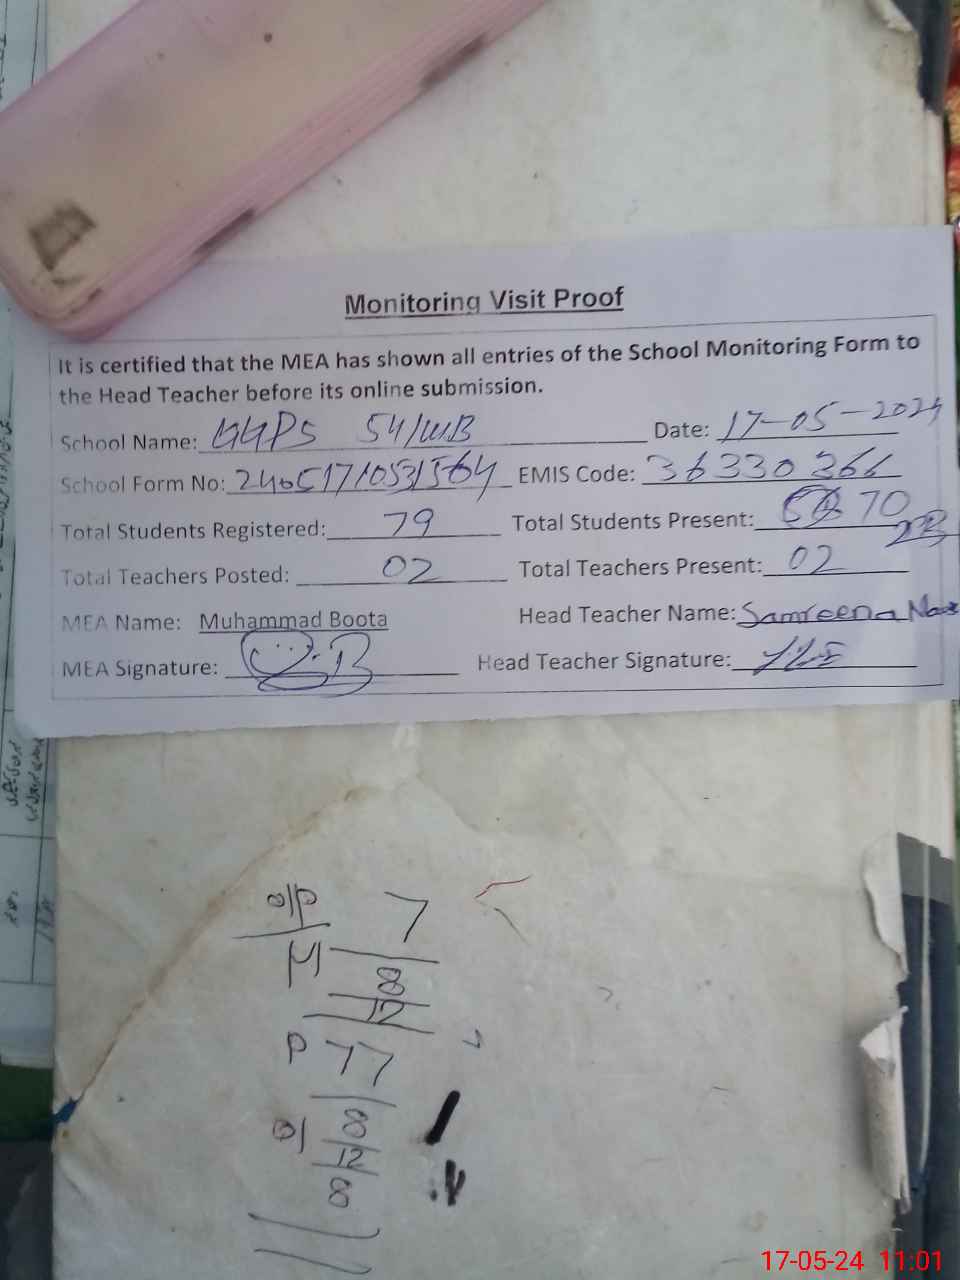 Monitoring Visit Proof
It is certified that the MEA has shown all entries of the School Monitoring Form to
the Head Teacher before its online submission.
School Name: GGPS 54/WB Date: 17-05-2024
School Form No: EMIS Code: 36330366
Total Students Registered: 79 Total Students Present: 70
Total Teachers Posted: 02 Total Teachers Present: 02
MEA Name: Muhammad Boota Head Teacher Name: Samreena
MEA Signature: Head Teacher Signature:
17-05-24 11:01